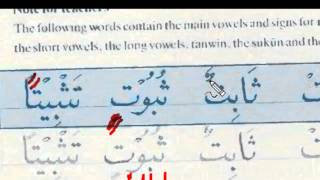 Note for teachers
The following words contain the main vowels and signs for
the short vowels, the long vowels, tanwin, the sukūn and the
ثَابِتٌ ثُبُوْتٍ تَثْبِيْتًا
ثَابِتٌ ثُبُوْتٍ تَثْبِيْتًا